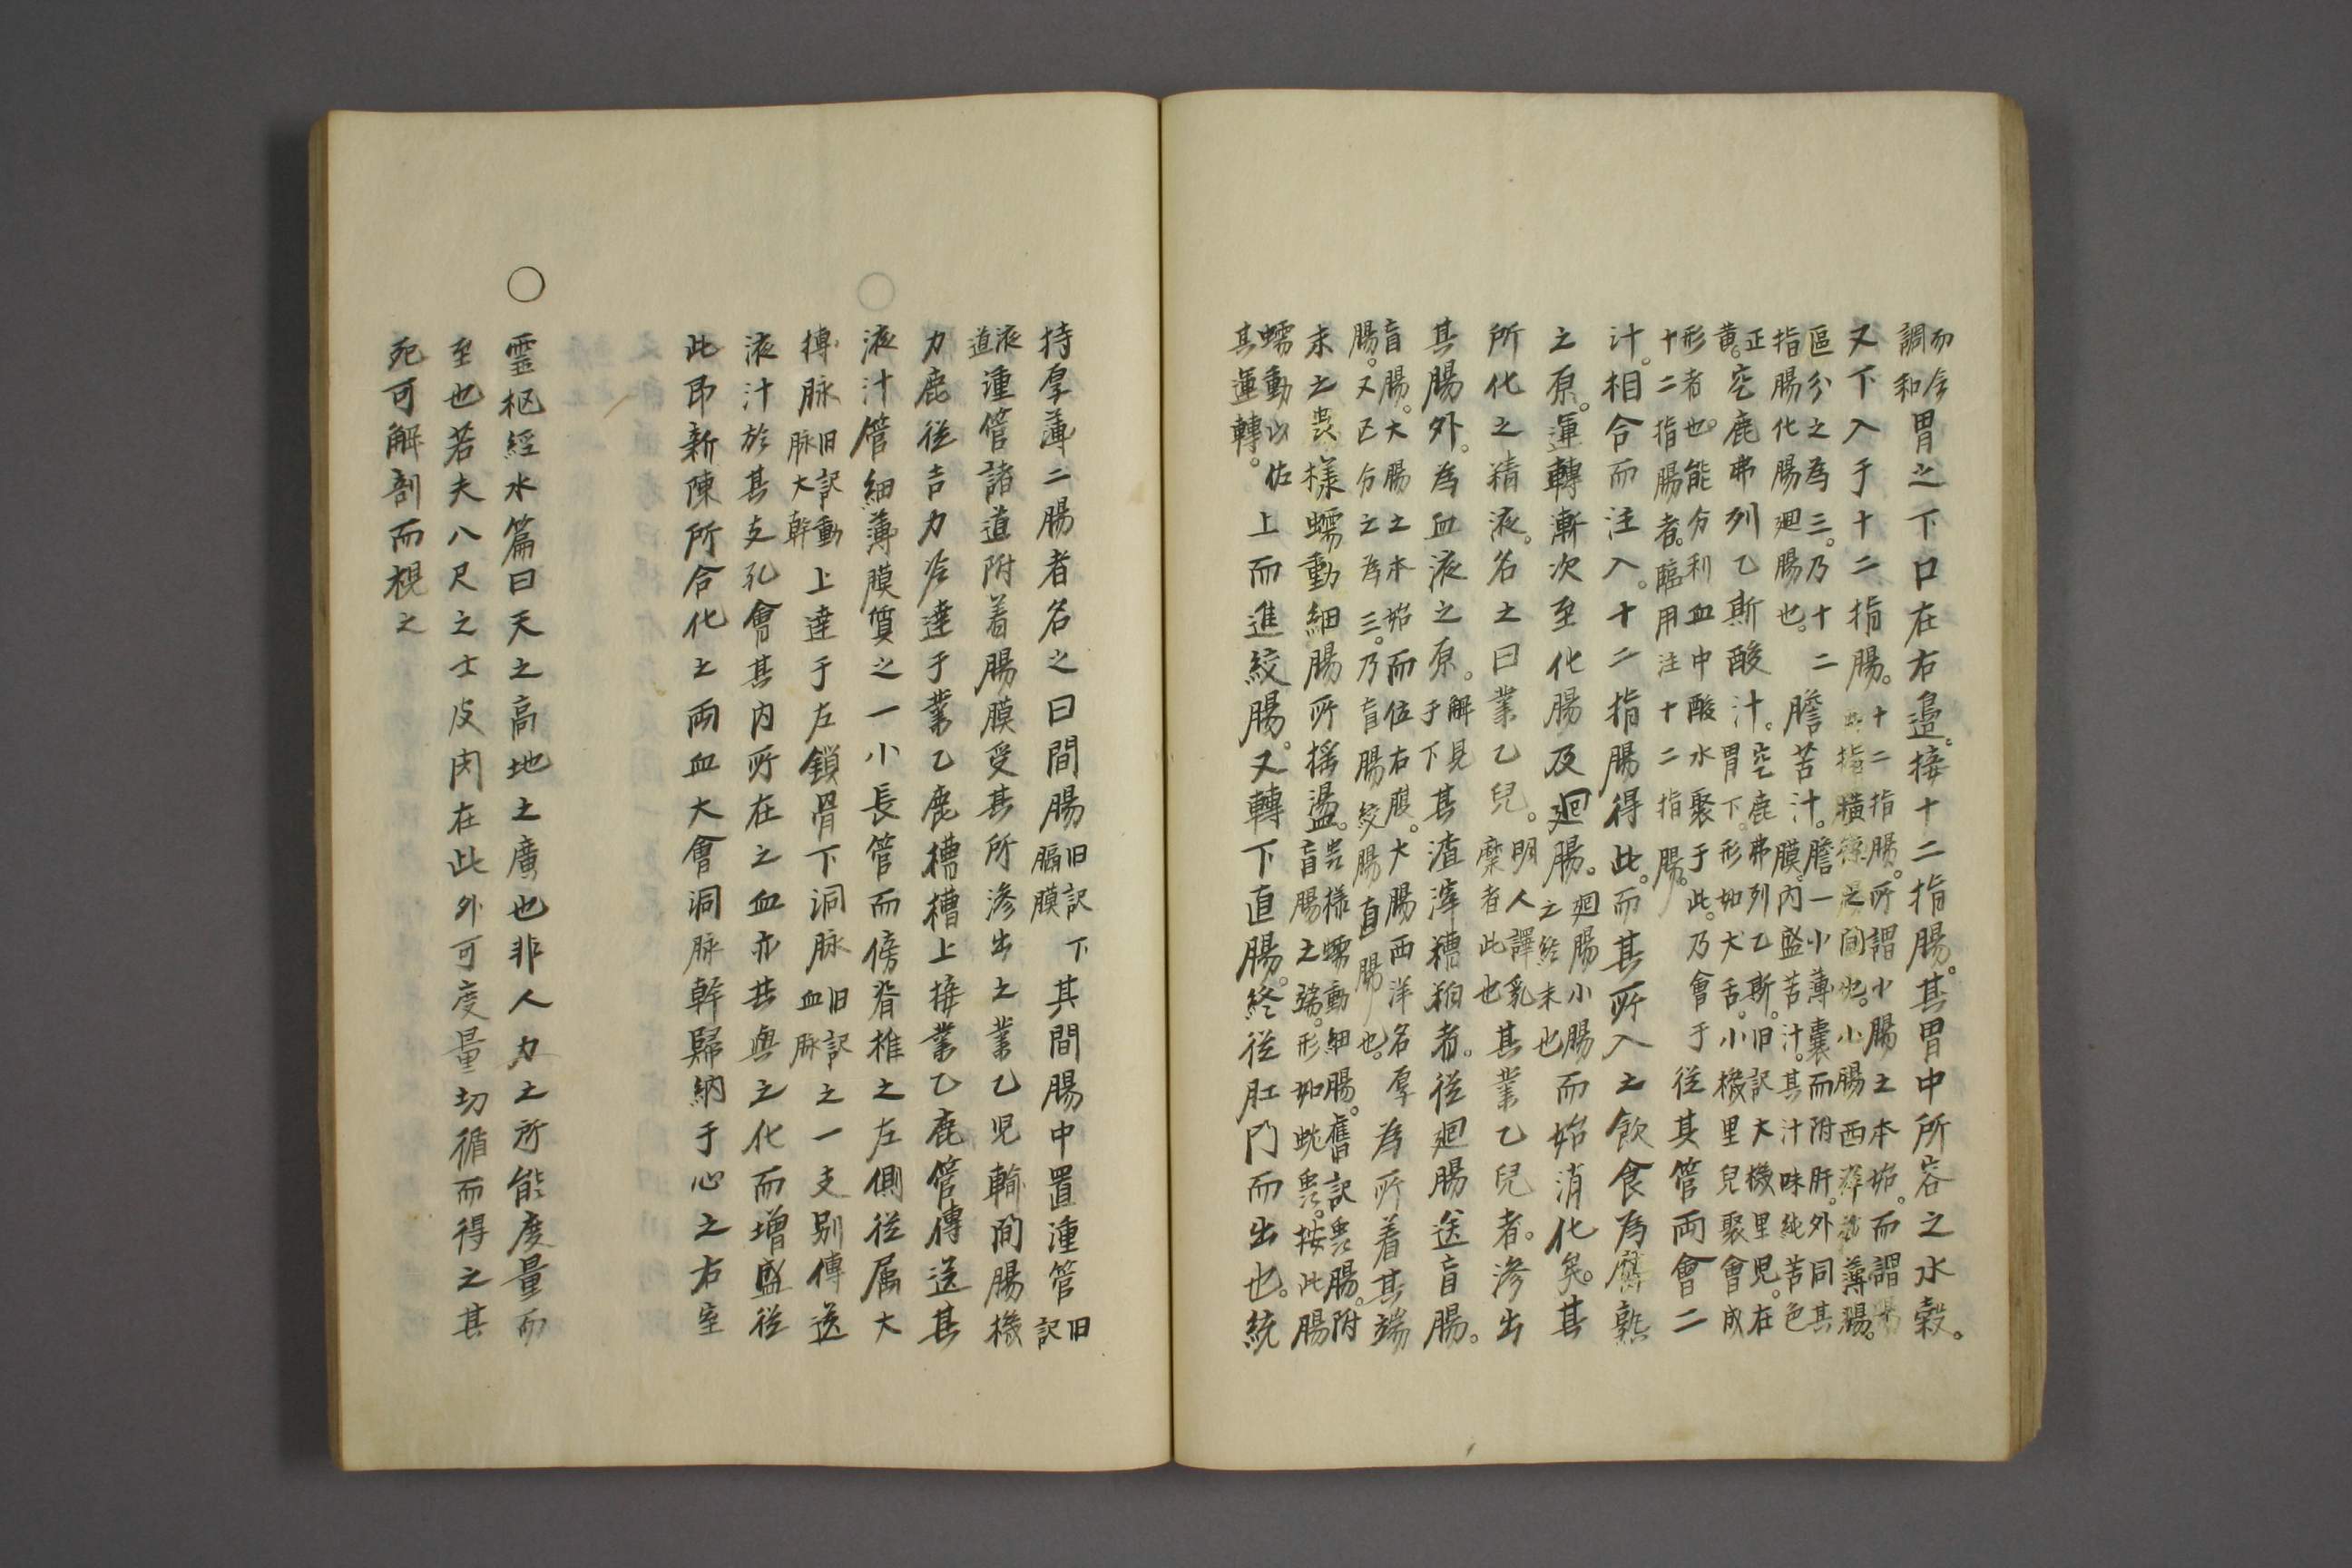 而后
調和胃之下口在右邉。接十二指腸。其胃中所容之水穀。
又下入于十二指腸。十二指腸。所謂小腸之本始。而謂
指横之間也。小腸西薄腸。
區分之為三。乃十二
指腸化腸廻腸也。膽苦汁。膽一小薄嚢而附肝。外同其
膜。内盛苦汁。其汁味純苦色
正
黄。空鹿弗列乙斯酸汁。空鹿弗列乙斯。旧訳大機里児。在
胃下。形如犬舌。小機里兒聚會成
形者也。能分利血中酸水聚于此。乃會于
十二指腸者。臨用注十二指腸。從其管両會二
汁。相合而注入。十二指腸得此。而其所入之飲食為腐熟
之原。運轉漸次至化腸及廻腸。廻腸小腸
之終末也而始消化矣。其
所化之精液。名之曰業乙兒。明人譯乳
糜者此也其業乙兒者。滲出
其腸外。為血液之原。解見
于下其渣滓糟粕者。從廻腸送盲腸。
盲腸。大腸之本始而位右腹。大腸西洋名厚
腸。又区分之為三。乃盲腸絞腸直腸也。為所着其端
末之様蠕動細腸所揺盪。様蠕動細腸。舊訳腸。附
盲腸之端。形如蚘。按此腸
蠕動以佐
其運轉。上而進絞腸。又轉下直腸。終従肛門而出也。統
持厚薄二腸者名之曰間腸旧訳
膈膜下其間腸中置湩管旧
訳
液
道湩管諸道附着腸膜受其所滲出之業乙児輸間腸機
力鹿從吉力冷達于業乙鹿槽槽上接業乙鹿管傳送其
液汁管細薄膜質之一小長管而傍脊椎之左側従属大
搏脉旧訳動
脉大幹上達于左鎖骨下洞脉旧訳
血脉之一支別傳送
液汁於其支孔會其内所在之血亦共與之化而増盛従
此即新陳所合化之両血大會洞脉幹歸納于心之右室
○靈枢経水篇曰天之高地之廣也非人力之所能度量而
至也若夫八尺之士皮肉在此外可度量切循而得之其
死可解剖而視之